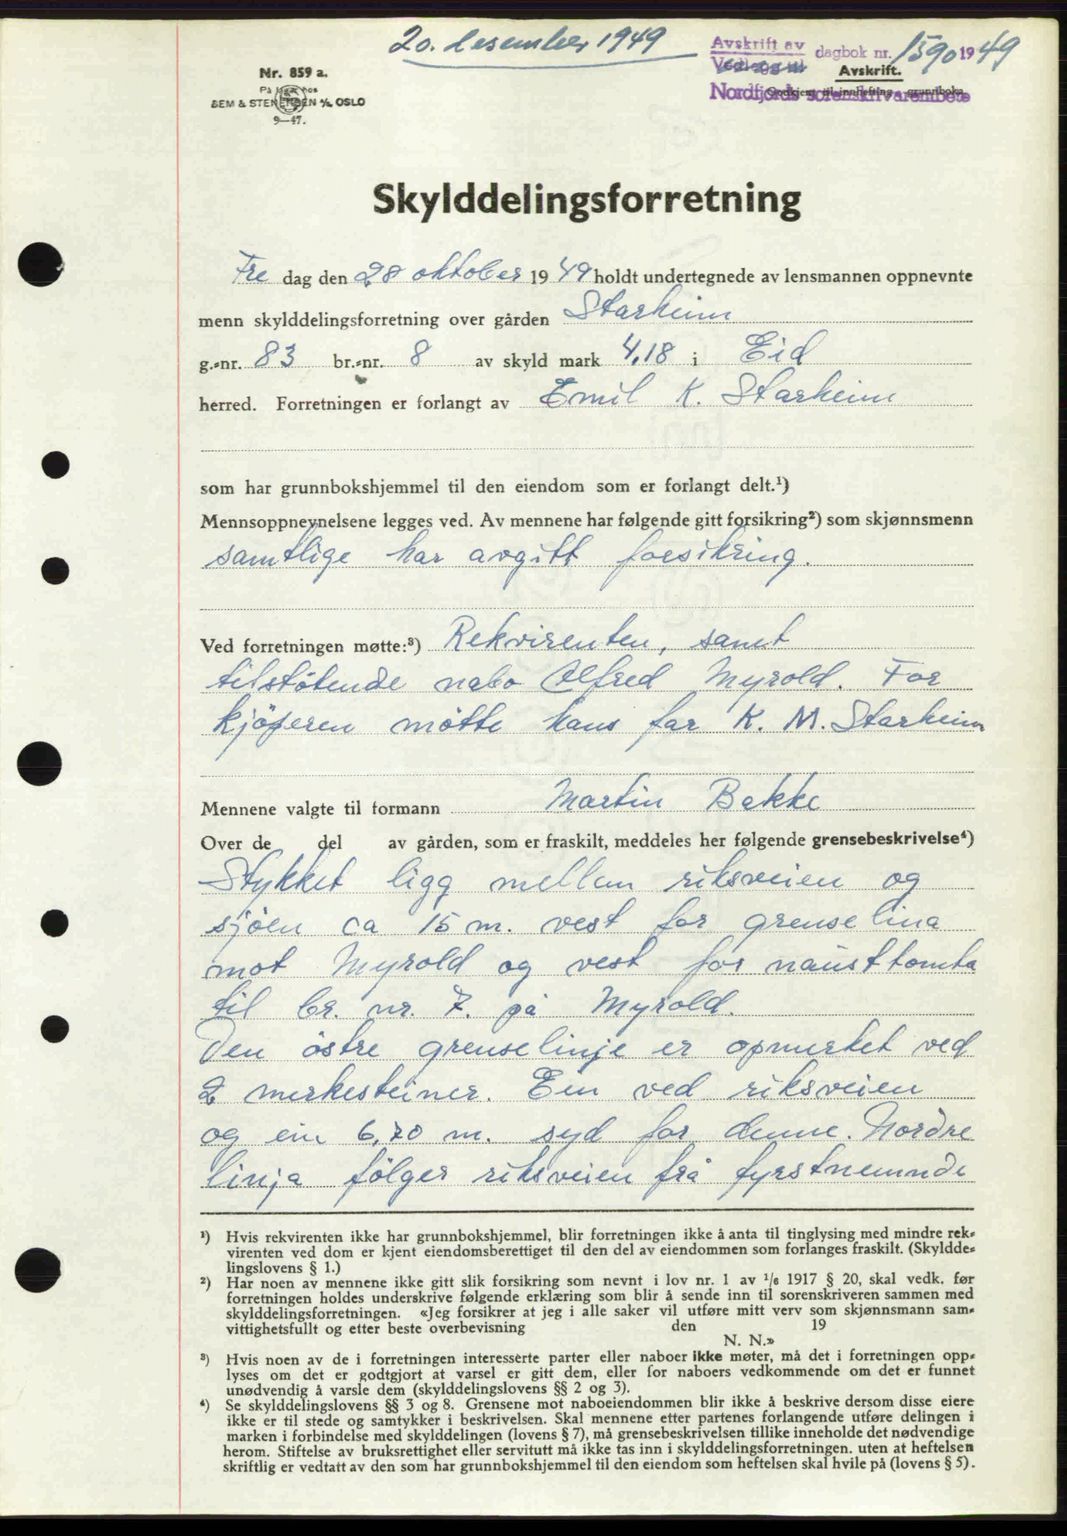 20. desember 1949
Avskrift av dagbok nr. 1590 1949
Vedlegg til
Avskrift.
Nordfjords sorenskriverembete
Nr. 859 a.
På lager hos
SEM & STENERSEN A/S, OSLO
9—47.
Skylddelingsforretning
Fre dag den 28 oktober 1949 holdt undertegnede av lensmannen oppnevnte
menn skylddelingsforretning over gården Starheim
g.-nr. 83 br.-nr. 8 av skyld mark 4,18 i Eid
herred. Forretningen er forlangt av Emil K. Starheim
som har grunnbokshjemmel til den eiendom som er forlangt delt.¹)
Mennsoppnevnelsene legges ved. Av mennene har følgende gitt forsikring²) som skjønnsmenn
samtlige har avgitt forsikring.
Ved forretningen møtte:³) Rekvirenten, samt
tilstøtende nabo Alfred Myrold. For
kjøperen møtte hans far K. M. Starheim
Mennene valgte til formann Martin Bakke
Over de del av gården, som er fraskilt, meddeles her følgende grensebeskrivelse⁴)
Stykket ligg mellem riksveien og
sjöen ca 15 m. vest for grenselina
mot Myrold og vest for nausttomta
til br. nr. 7. på Myrold.
Den östre grenselinje er opmerket ved
2 merkesteiner. Ein ved riksveien
og ein 6,70 m. syd for denne. Nordre
linja fölger riksveien frå fyrstnemnde
¹) Hvis rekvirenten ikke har grunnbokshjemmel, blir forretningen ikke å anta til tinglysing med mindre rek-
virenten ved dom er kjent eiendomsberettiget til den del av eiendommen som forlanges fraskilt. (Skyldde-
lingslovens § 1.)
²) Har noen av mennene ikke gitt slik forsikring som nevnt i lov nr. 1 av ¹/₆ 1917 § 20, skal vedk. før
forretningen holdes underskrive følgende erklæring som blir å sende inn til sorenskriveren sammen med
skylddelingsforretningen. «Jeg forsikrer at jeg i alle saker vil utføre mitt verv som skjønnsmann sam-
vittighetsfullt og etter beste overbevisning den 19
N. N.»
³) Hvis noen av de i forretningen interesserte parter eller naboer ikke møter, må det i forretningen opp-
lyses om det er godtgjort at varsel er gitt dem, eller for naboers vedkommende om det er funnet
unødvendig å varsle dem (skylddelingslovens §§ 2 og 3).
⁴) Se skylddelingslovens §§ 3 og 8. Grensene mot naboeiendommen blir ikke å beskrive dersom disse eiere
ikke er til stede og samtykker i beskrivelsen. Skal mennene etter partenes forlangende utføre delingen i
marken i forbindelse med skylddelingen (lovens § 7), må grensebeskrivelsen tillike inneholde det nødvendige
herom. Stiftelse av bruksrettighet eller servitutt må ikke tas inn i skylddelingsforretningen, uten at heftelsen
skriftlig er vedtatt av den som har grunnbokshjemmel til den eiendom som heftelsen skal hvile på (lovens § 5).